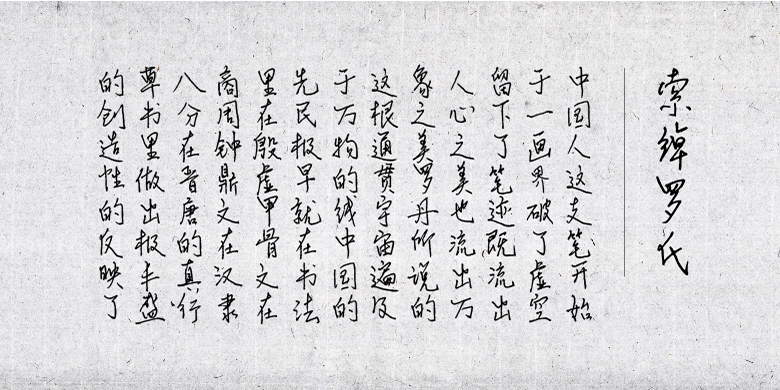 索绰罗氏
中国人这支笔开始
于一画界破了虚空
留下了笔迹既流出
人心之美也流出万
象之美罗丹所说的
这根通贯宇宙遍及
于万物的线中国的
先民极早就在书法
里在殷虚甲骨文在
商周钟鼎文在汉隶
八分在晋唐的真行
草书里做出极丰盛
的创造性的反映了